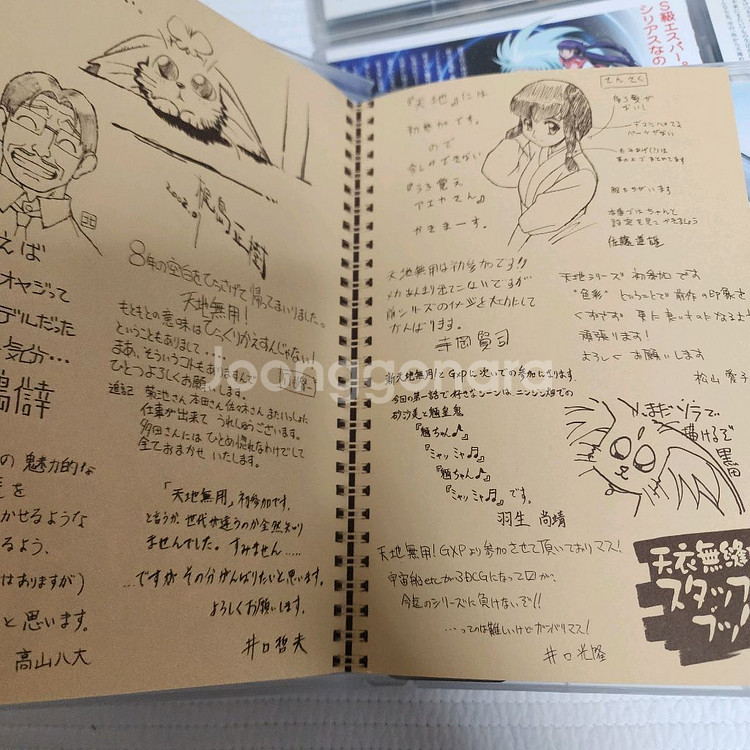 S級エスパー。
シリアスなの
えば
オヤジって
デルだった
気分…
の 魅力的な
を
かせるような
るよう、
はありますが)
と思います。
高山八大
梶島正樹
8年の空白をひっさげて帰ってまいりました。
天地無用!
もともとの意味はひっくりかえすんじゃない!
ということもありまして…
まあ、そういうコトもありますんで
ひとつよろしくお願いします。
追記 菊池さん本田さん佐々木さんまたいっしょに
仕事が出来て うれしゅうございます。
多田さんには ひとめ惚れなわけでして
全ておまかせ いたします。
「天地無用」初参加です。
と言うか、世代が違うのか全然知り
ませんでした。すみません……
…ですが その分がんばりたいと思います。
よろしくお願いします。
井口哲夫
『天地』には
初参加です。
ので
今しかできない
『うろ覚え
アエカさん』
かきまーす。
佐藤道雄
天地無用は初参加です!!
メカあんまり出てこないですが
前シリーズのイメージを大切にして
がんばります。
寺岡賢司
天地シリーズ 初参加です
"色彩" ということで 前作の印象を
くずさず 更に良いものになるよう
頑張ります!
よろしく お願いします
松山愛子
新天地無用!とGXPに次いでの参加になります。
今回の第一話で好きなシーンはニンジン畑での
砂沙美と魎皇鬼
『魎ちゃん♪』
『ミャッ ミャ♬』
『魎ちゃん♪』
『ミャッ ミャ♬』です。
羽生 尚靖
まだソラで
描けるぞ
黒田
天地無用!GXPより参加させて頂いておりマス!
宇宙船etcが3DCGになって
今迄のシリーズに負けないぞ!!
…ってのは難しいけどガンバリマス!
井口光隆
天衣無縫
スタッフ
ブッ
Joonggonara